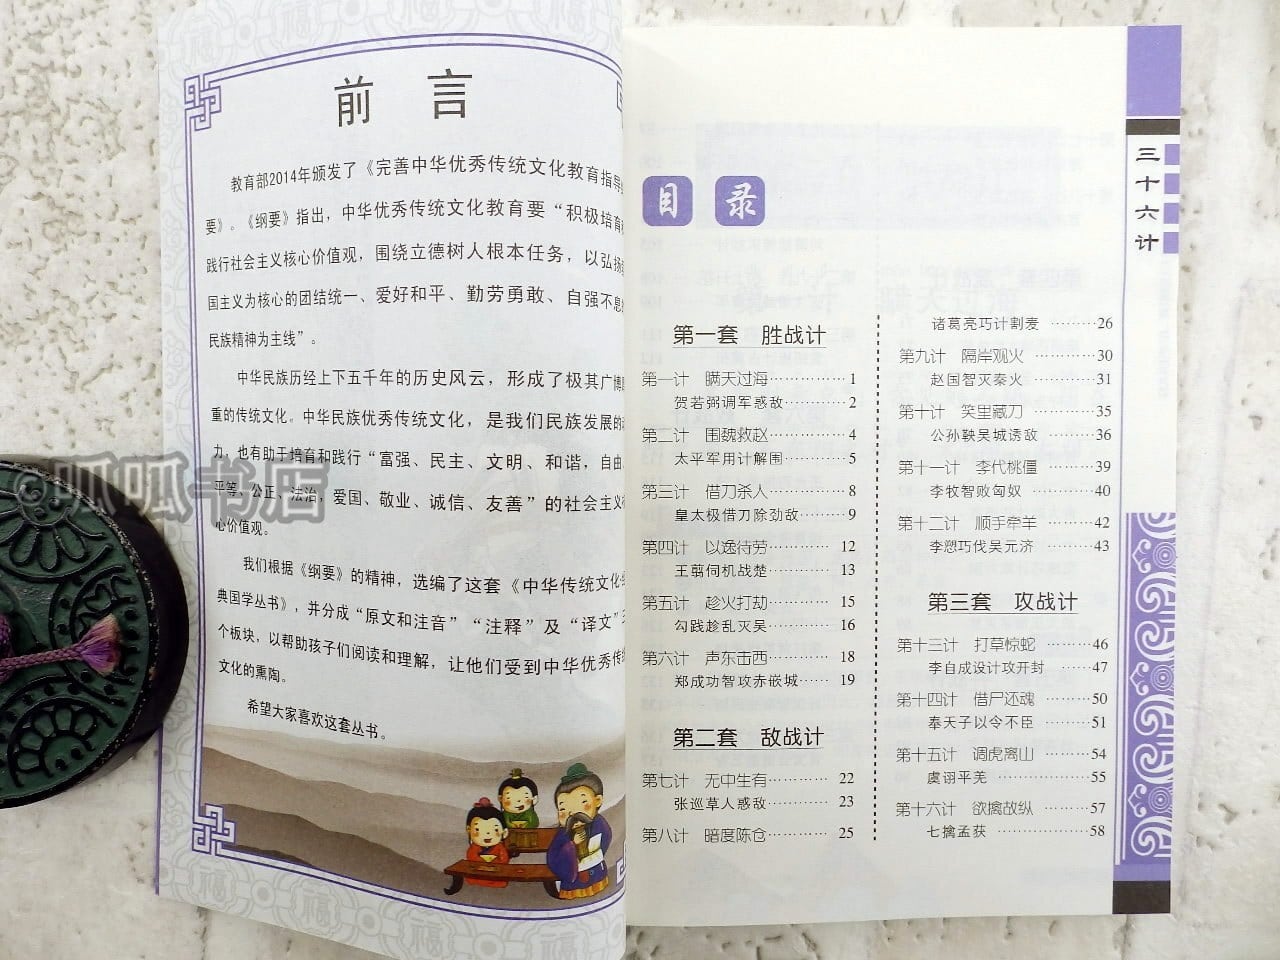 前言
教育部2014年颁发了《完善中华优秀传统文化教育指导
要》。《纲要》指出，中华优秀传统文化教育要“积极培育
践行社会主义核心价值观，围绕立德树人根本任务，以弘扬
国主义为核心的团结统一、爱好和平、勤劳勇敢、自强不息
民族精神为主线”。
中华民族历经上下五千年的历史风云，形成了极其广博
重的传统文化。中华民族优秀传统文化，是我们民族发展的
力，也有助于培育和践行“富强、民主、文明、和谐，自由、
平等、公正、法治，爱国、敬业、诚信、友善”的社会主义
心价值观。
我们根据《纲要》的精神，选编了这套《中华传统文化
典国学丛书》，并分成“原文和注音”“注释”及“译文”
个板块，以帮助孩子们阅读和理解，让他们受到中华优秀传统
文化的熏陶。
希望大家喜欢这套丛书。
©呱呱书店
目录
第一套 胜战计
第一计 瞒天过海……………1
贺若弼调军惑敌…………2
第二计 围魏救赵…………4
太平军用计解围…………5
第三计 借刀杀人…………8
皇太极借刀除劲敌………9
第四计 以逸待劳…………12
王翦伺机战楚…………13
第五计 趁火打劫…………15
勾践趁乱灭吴…………16
第六计 声东击西…………18
郑成功智攻赤嵌城……19
第二套 敌战计
第七计 无中生有…………22
张巡草人惑敌…………23
第八计 暗度陈仓…………25
诸葛亮巧计割麦………26
第九计 隔岸观火…………30
赵国智灭秦火…………31
第十计 笑里藏刀…………35
公孙鞅吴城诱敌………36
第十一计 李代桃僵………39
李牧智败匈奴…………40
第十二计 顺手牵羊………42
李愬巧伐吴元济………43
第三套 攻战计
第十三计 打草惊蛇………46
李自成设计攻开封……47
第十四计 借尸还魂………50
奉天子以令不臣………51
第十五计 调虎离山………54
虞诩平羌………………55
第十六计 欲擒故纵………57
七擒孟获………………58
三十六计